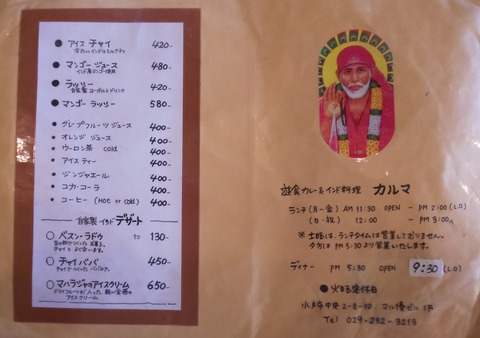 ● アイス チャイ 420-
冷たいインドのミルクティ
● マンゴー ジュース 480-
インド産マンゴー使用
● ラッシー 420-
自家製 ヨーグルトドリンク
● マンゴー ラッシー 580-
・ グレープフルーツ ジュース 400-
・ オレンジ ジュース 400-
・ ウーロン茶 cold 400-
・ アイスティー 400-
・ ジンジャエール 400-
・ コカ・コーラ 400-
・ コーヒー (Hot or cold) 400-
自家製 インド デザート
○ ベスン・ラドゥ 1ケ 130-
チャイと よく合います。
○ チャイババ 450-
チャイでつくった ババロア。
○ マハラジャのアイスクリーム 650-
ドライフルーツが入った
アイスクリーム
遊食カレー&インド料理 カルマ
ランチ (月-金) AM 11:30 OPEN - PM 2:00 (L.O)
(日・祝) 12:00 - PM 3:00
※ 土曜は、ランチタイムは営業しておりません。
夕方は PM 5:30 より営業いたします。
ディナー PM 5:30 OPEN 9:30 (L.O)
● 火曜定休日
水戸市中央 2-8-10
Tel 029-232-3213